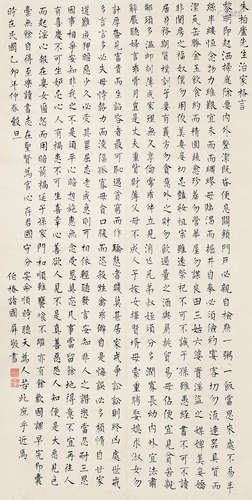 朱盧先生治家格言
黎明即起洒掃庭除要內外整潔既昏便息關鎖門戶必親自檢點一粥一飯當思來處不易半
絲半縷恆念物力維艱宜未雨而綢繆毋臨渴而掘井自奉必須儉約宴客切勿流連器具質而
潔瓦缶勝金玉飲食約而精園蔬愈珍饈勿營華屋勿謀良田三姑六婆實淫盜之媒婢美妾嬌
非閨房之福奴僕勿用俊美妻妾切忌豔妝祖宗雖遠祭祀不可不誠子孫雖愚經書不可不讀居
身務期質樸教子要有義方勿貪意外之財勿飲過量之酒與肩挑貿易毋佔便宜見貧苦親
鄰須多溫卹刻薄成家理無久享倫常乖舛立見消亡兄弟叔姪須分多潤寡長幼內外宜法肅
辭嚴聽婦言乖骨肉豈是丈夫重資財薄父母不成人子嫁女擇佳婿毋索重聘娶媳求淑女毋
計厚奩見富貴而生諂容者最可恥遇貧窮而作驕態者賤莫甚居家戒爭訟訟則終凶處世戒
多言言多必失毋恃勢力而凌逼孤寡毋貪口腹而恣殺牲禽乖僻自是悔誤必多頹惰自甘家
道難成狎暱惡少久必受其累屈志老成急則可相依輕聽發言安知非人之譖愬當忍耐三思
因事相爭安知非我之不是須平心暗想施惠勿念受恩莫忘凡事當留餘地得意不宜再往人
有喜慶不可生妒忌心人有禍患不可生喜幸心善欲人見不是真善惡恐人知便是大惡見色
而起淫心報在妻女匿怨而用暗箭禍延子孫家門和順雖饔飧不繼亦有餘歡國課早完即囊
橐無餘自得至樂讀書志在聖賢為官心存君國守分安命順時聽天為人若此庶乎近焉
時在民國乙卯年仲春穀旦
伯椿諸國屏敬書